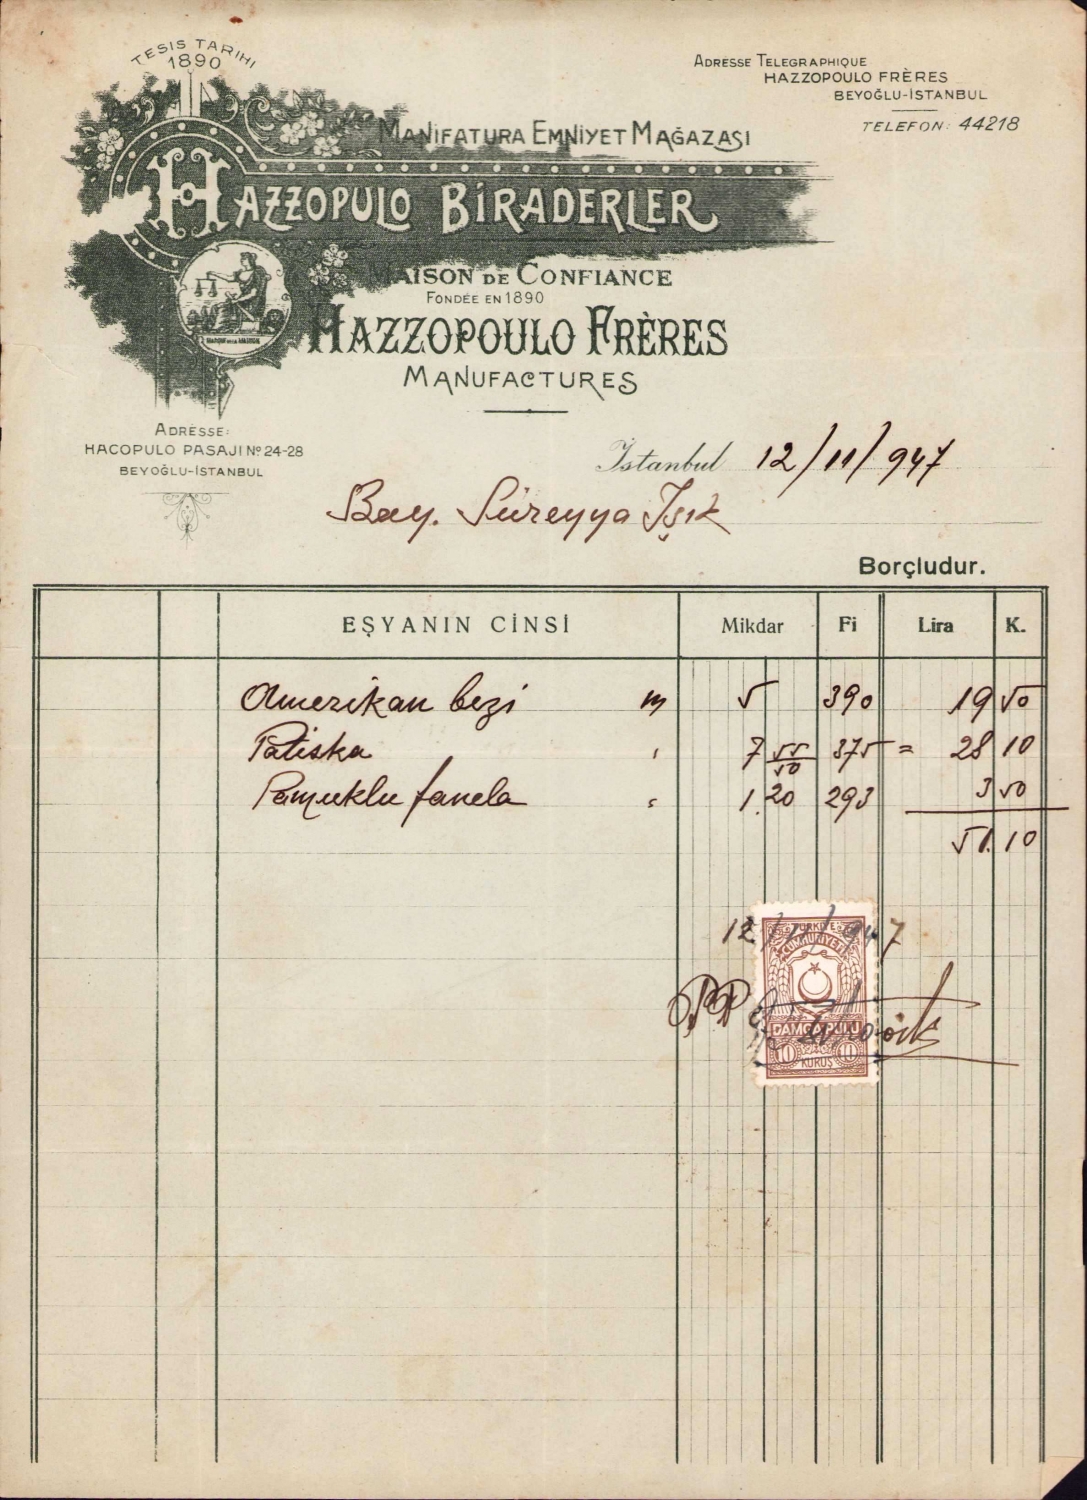 TESİS TARİHİ
1890
ADRESSE TELEGRAPHIQUE
HAZZOPOULO FRÈRES
BEYOĞLU-İSTANBUL
TELEFON: 44218
MANİFATURA EMNİYET MAĞAZASI
HAZZOPULO BİRADERLER
MAISON DE CONFIANCE
FONDÉE EN 1890
HAZZOPOULO FRÈRES
MANUFACTURES
ADRESSE:
HACOPULO PASAJI Nº 24-28
BEYOĞLU-İSTANBUL
İstanbul 12/11/947
Bay. Süreyya Işık
Borçludur.
EŞYANIN CİNSİ Mikdar Fi Lira K.
Amerikan bezi m 5 390 19 50
Patiska " 7 55/50 375 = 28 10
Pamuklu fanela " 1.20 293 3 50
51.10
12/11/947
TÜRKİYE
CUMHURİYETİ
PP
DAMGA PULU
10 10
KURUŞ